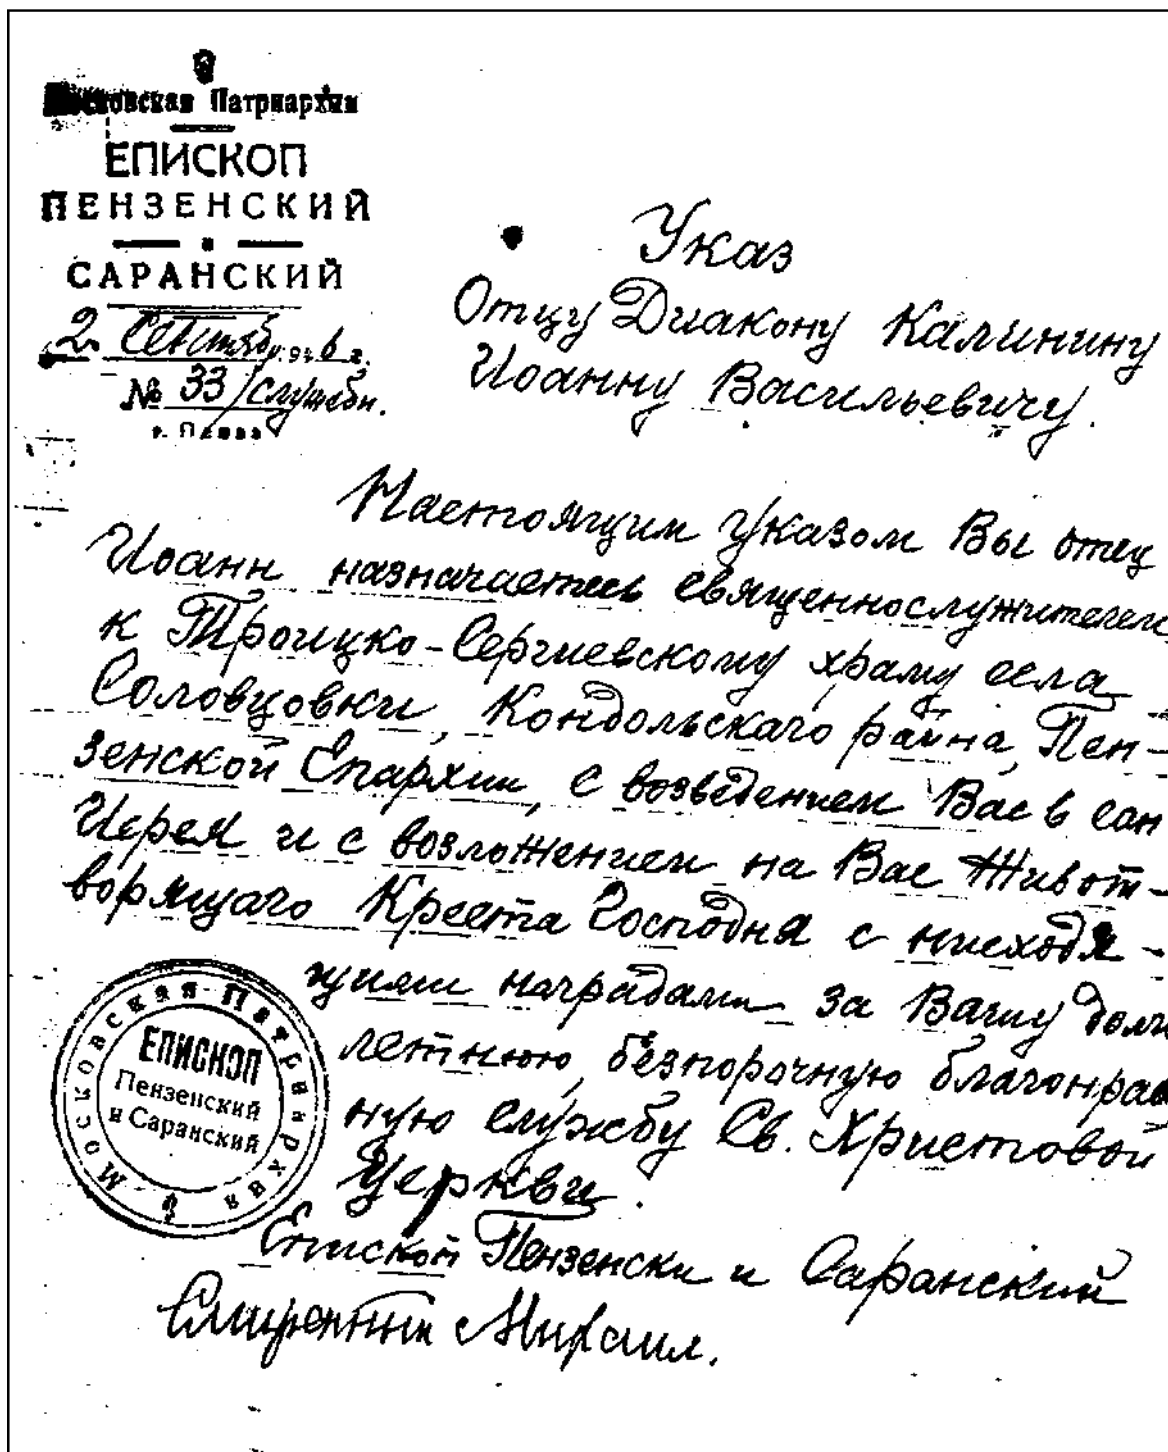 Московская Патриархия
ЕПИСКОП
ПЕНЗЕНСКИЙ
и
САРАНСКИЙ
2 Сентяб 1946 г.
№ 33/служебн.
г. Пенза
Указ
Отцу Диакону Калинину
Иоанну Васильевичу.
Настоящим Указом Вы отец
Иоанн назначаетесь священнослужителем
к Троицко-Сергиевскому храму села
Соловцовки, Кондольскаго район, Пен-
зенской Епархии, с возведением Вас в сан
Иерея и с возложением на Вас Живот-
ворящаго Креста Господня с нисходя-
щими наградами за Вашу долго
летнюю, безпорочную благонрав
ную службу Св. Христовой
Церкви.
Епископ Пензенски и Саранский
Смиренный Михаил.
Московская Патриархия
ЕПИСКОП
Пензенский
и Саранский